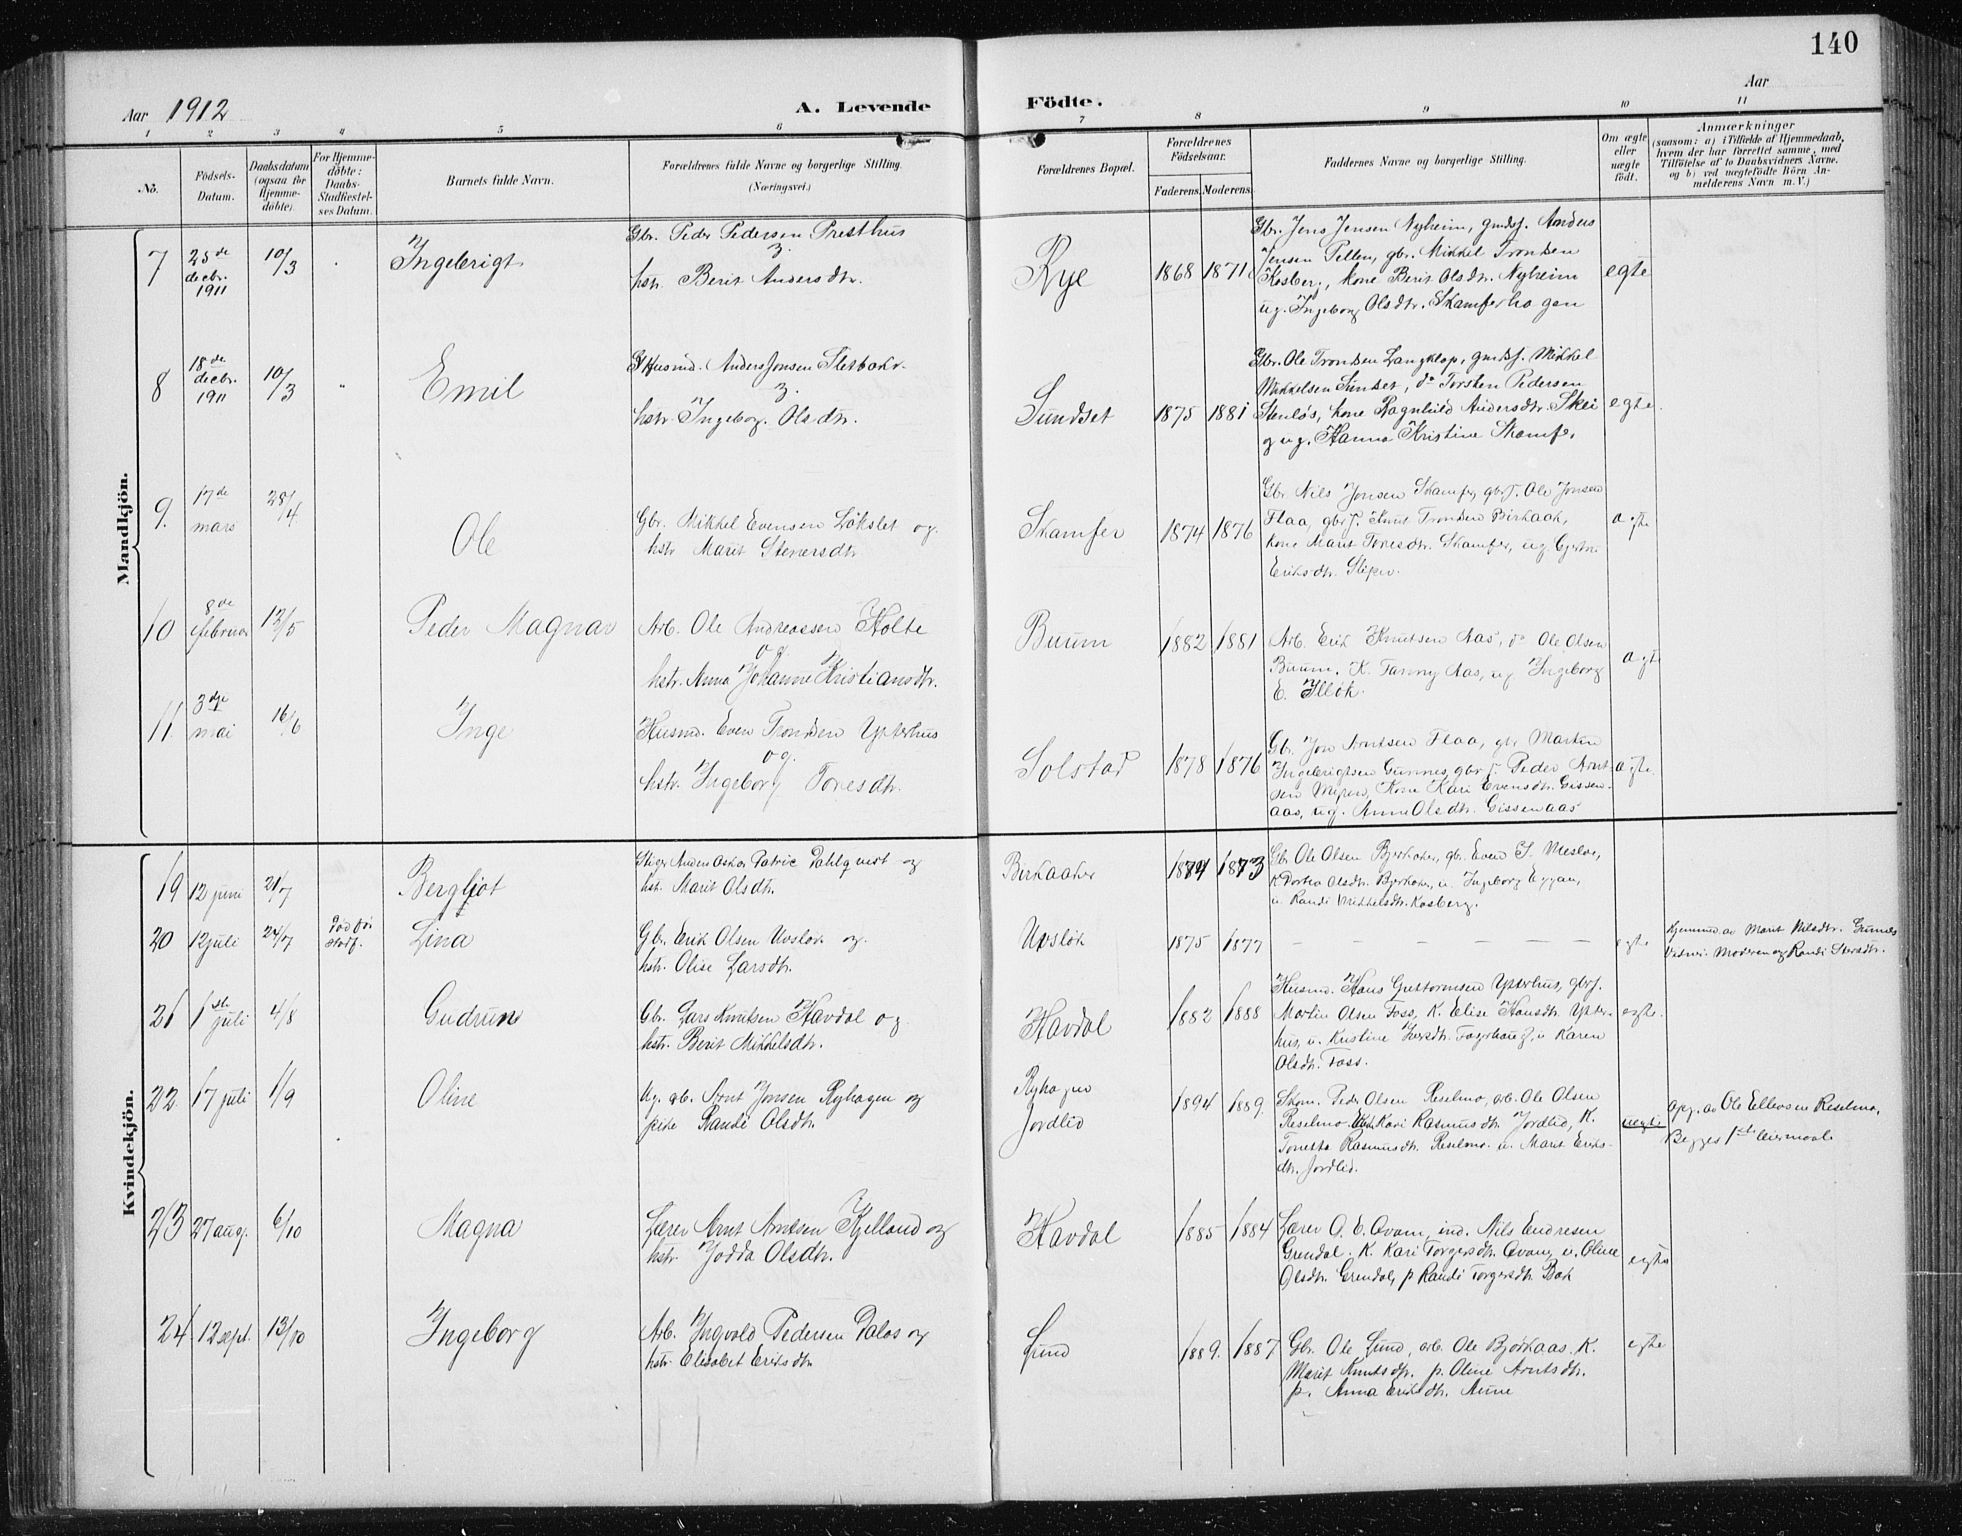 140
Aar 1912
A. Levende
Födte.
Aar
1 2 3 4 5 6 7 8 9 10 11
No.
Födsels-
Datum.
Daabsdatum
(ogsaa for
Hjemme-
døbte).
For Hjemme-
døbte:
Daabs-
Stadfæstel-
ses Datum.
Barnets fulde Navn.
Forældrenes fulde Navne og borgerlige Stilling.
(Næringsvei.)
Forældrenes Bopæl.
Forældrenes
Födselsaar.
Faderens. Moderens.
Faddernes Navne og borgerlige Stilling.
Om ægte
eller
uægte
födt.
Anmærkninger
(saasom: a) i Tilfælde af Hjemmedaab,
hvem der har forrettet samme, med
Tilföielse af to Daabsvidners Navne.
og b) ved uægtefödte Börn An-
melderens Navn m. V.)
Mandkjön.
7
25de
decbr.
1911
10/3
Ingebrigt
Gbr. Peder Pedersen Presthus
&
hstr. Berit Andersdtr.
Rye
1868 1871
Gbr. Jens Jensen Nyheim, gmds. Anders
Jensen Pellen, gbr. Mikkel Trondsen
Kosberg, kone Berit Olsdtr. Nyheim
ug. Ingeborg Olsdtr. Skamferhagen
egte
8
18de
decbr.
1911
10/3
"
Emil
Husmd. Anders Jonsen Sletbakk.
&
hstr. Ingeborg Olsdtr.
Sundset
1875 1881
Gbr. Ole Trondsen Langklop, gmds. Mikkel
Mikkelsen Sundset, do Torsten Pedersen
Stenløs, kone Ragnhild Andersdtr. Skei
og ug. Hanna Kristine Skamfer.
egte
9.
17de
mars
25/4
Ole
Gbr. Mikkel Evensen Løkslet og
hstr Marit Stenersdtr
Skamfer
1874 1876
Gbr Nils Jonsen Skamfer, gbrs. Ole Jonsen
Flaa, gbrs. Knut Trondsen Birkaak,
kone Marit Toresdtr. Skamfer, ug.
Eriksdtr. Sliper.
ægte
10
8de
februar
12/5
Peder Magnar
Arb. Ole Andreassen Holte
og
hstr. Anna Johanne Kristiansdtr.
Buum
1882 1881
Arb. Erik Knutsen Aas, do Ole Olsen
Buum. K. Fanny Aas, ug Ingeborg
E. Illøk.
ægte
11.
3dje
mai
16/6
Inge
Husmd. Even Trondsen Ytterhus
og.
hstr. Ingeborg Toresdtr.
Solstad
1878 1876
Gbr. Jon Arntsen Flaa, gbr Martin
Ingebrigtsen Gunnes, gbrs. Peder Arnt-
sen Myren, Kone Kari Evensdtr. Gissen-
aas, ug. Anne Olsdtr. Gissenaas
ægte.
Kvindekjön.
19
12 juni
21/7
Bergljot
Stiger Anders Oskar Patric Dahlqvist og
hst. Marit Olsdtr.
Birkaaker
1874 1873
Gbr Ole Olsen Bjerkaker, gbr. Even J. Mesloe,
K. Dortea Olsdtr. Bjerkaker, u. Ingeborg Eggan,
u. Randi Mikkelsdtr. Kosberg.
20
12 juli
24/7
Død før
stadf.
Lina
Gbr. Erik Olsen Uvsløk og.
hstr. Olise Larsdtr.
Uvsløk
1875 1877
— — — — — —
egte
Hjemmed. av Marit Nilsdtr. Gunnes
Vidner: Moderen og Randi Sversdtr.
21
1ste
juli
4/8
Gudrun
Gbr. Lars Knutsen Havdal og
hstr. Berit Mikkelsdtr.
Havdal
1882 1888
Husmd. Hans Guttormsen Ytterhus, gbrs.
Martin Olsen Foss, K. Elise Hansdtr. Ytter-
hus, u. Kristine Iversdtr. Fagerhaug, u Karen
Olsdtr. Foss.
egte.
22
17 juli
1/9
Oline
Ug. gb. Arnt Jonsen Ryhagen og
pike Randi Olsdtr.
Ryhagen
Jordlid
1894 1889.
Skom. Peder Olsen Reselmo, arb. Ole Olsen
Reselmo. Kari Rasmusdtr Jordlid, K.
Tonetta Rasmusdtr. Reselmo. u. Marit Eriks-
dtr. Jordlid.
uegte
Opg. av Ole Ellevsen Reselmo.
Begges 1ste leiermaal
23
27 aug.
6/10
Magna
Lærer Arnt Arntsen Kjelland og
hstr. Jodda Olsdtr.
Havdal
1885 1884
Lærer O. E. Qvam, ind. Nils Endresen
Grendal. K. Kari Torgersdtr. Qvam, u. Oline
Olsdtr. Grendal, p Randi Torgersdtr. Bak
egte
24
12 sept.
13/10
Ingeborg
Arb. Ingvald Pedersen Dalos og
hstr. Elisabet Eriksdtr.
Lund
1889. 1887
Gbr. Ole Lund, arb. Ole Bjørkaas. K.
Marit Knutsdtr. p. Oline Arntsdtr.
p. Anna Eriksdtr. Aune
egte